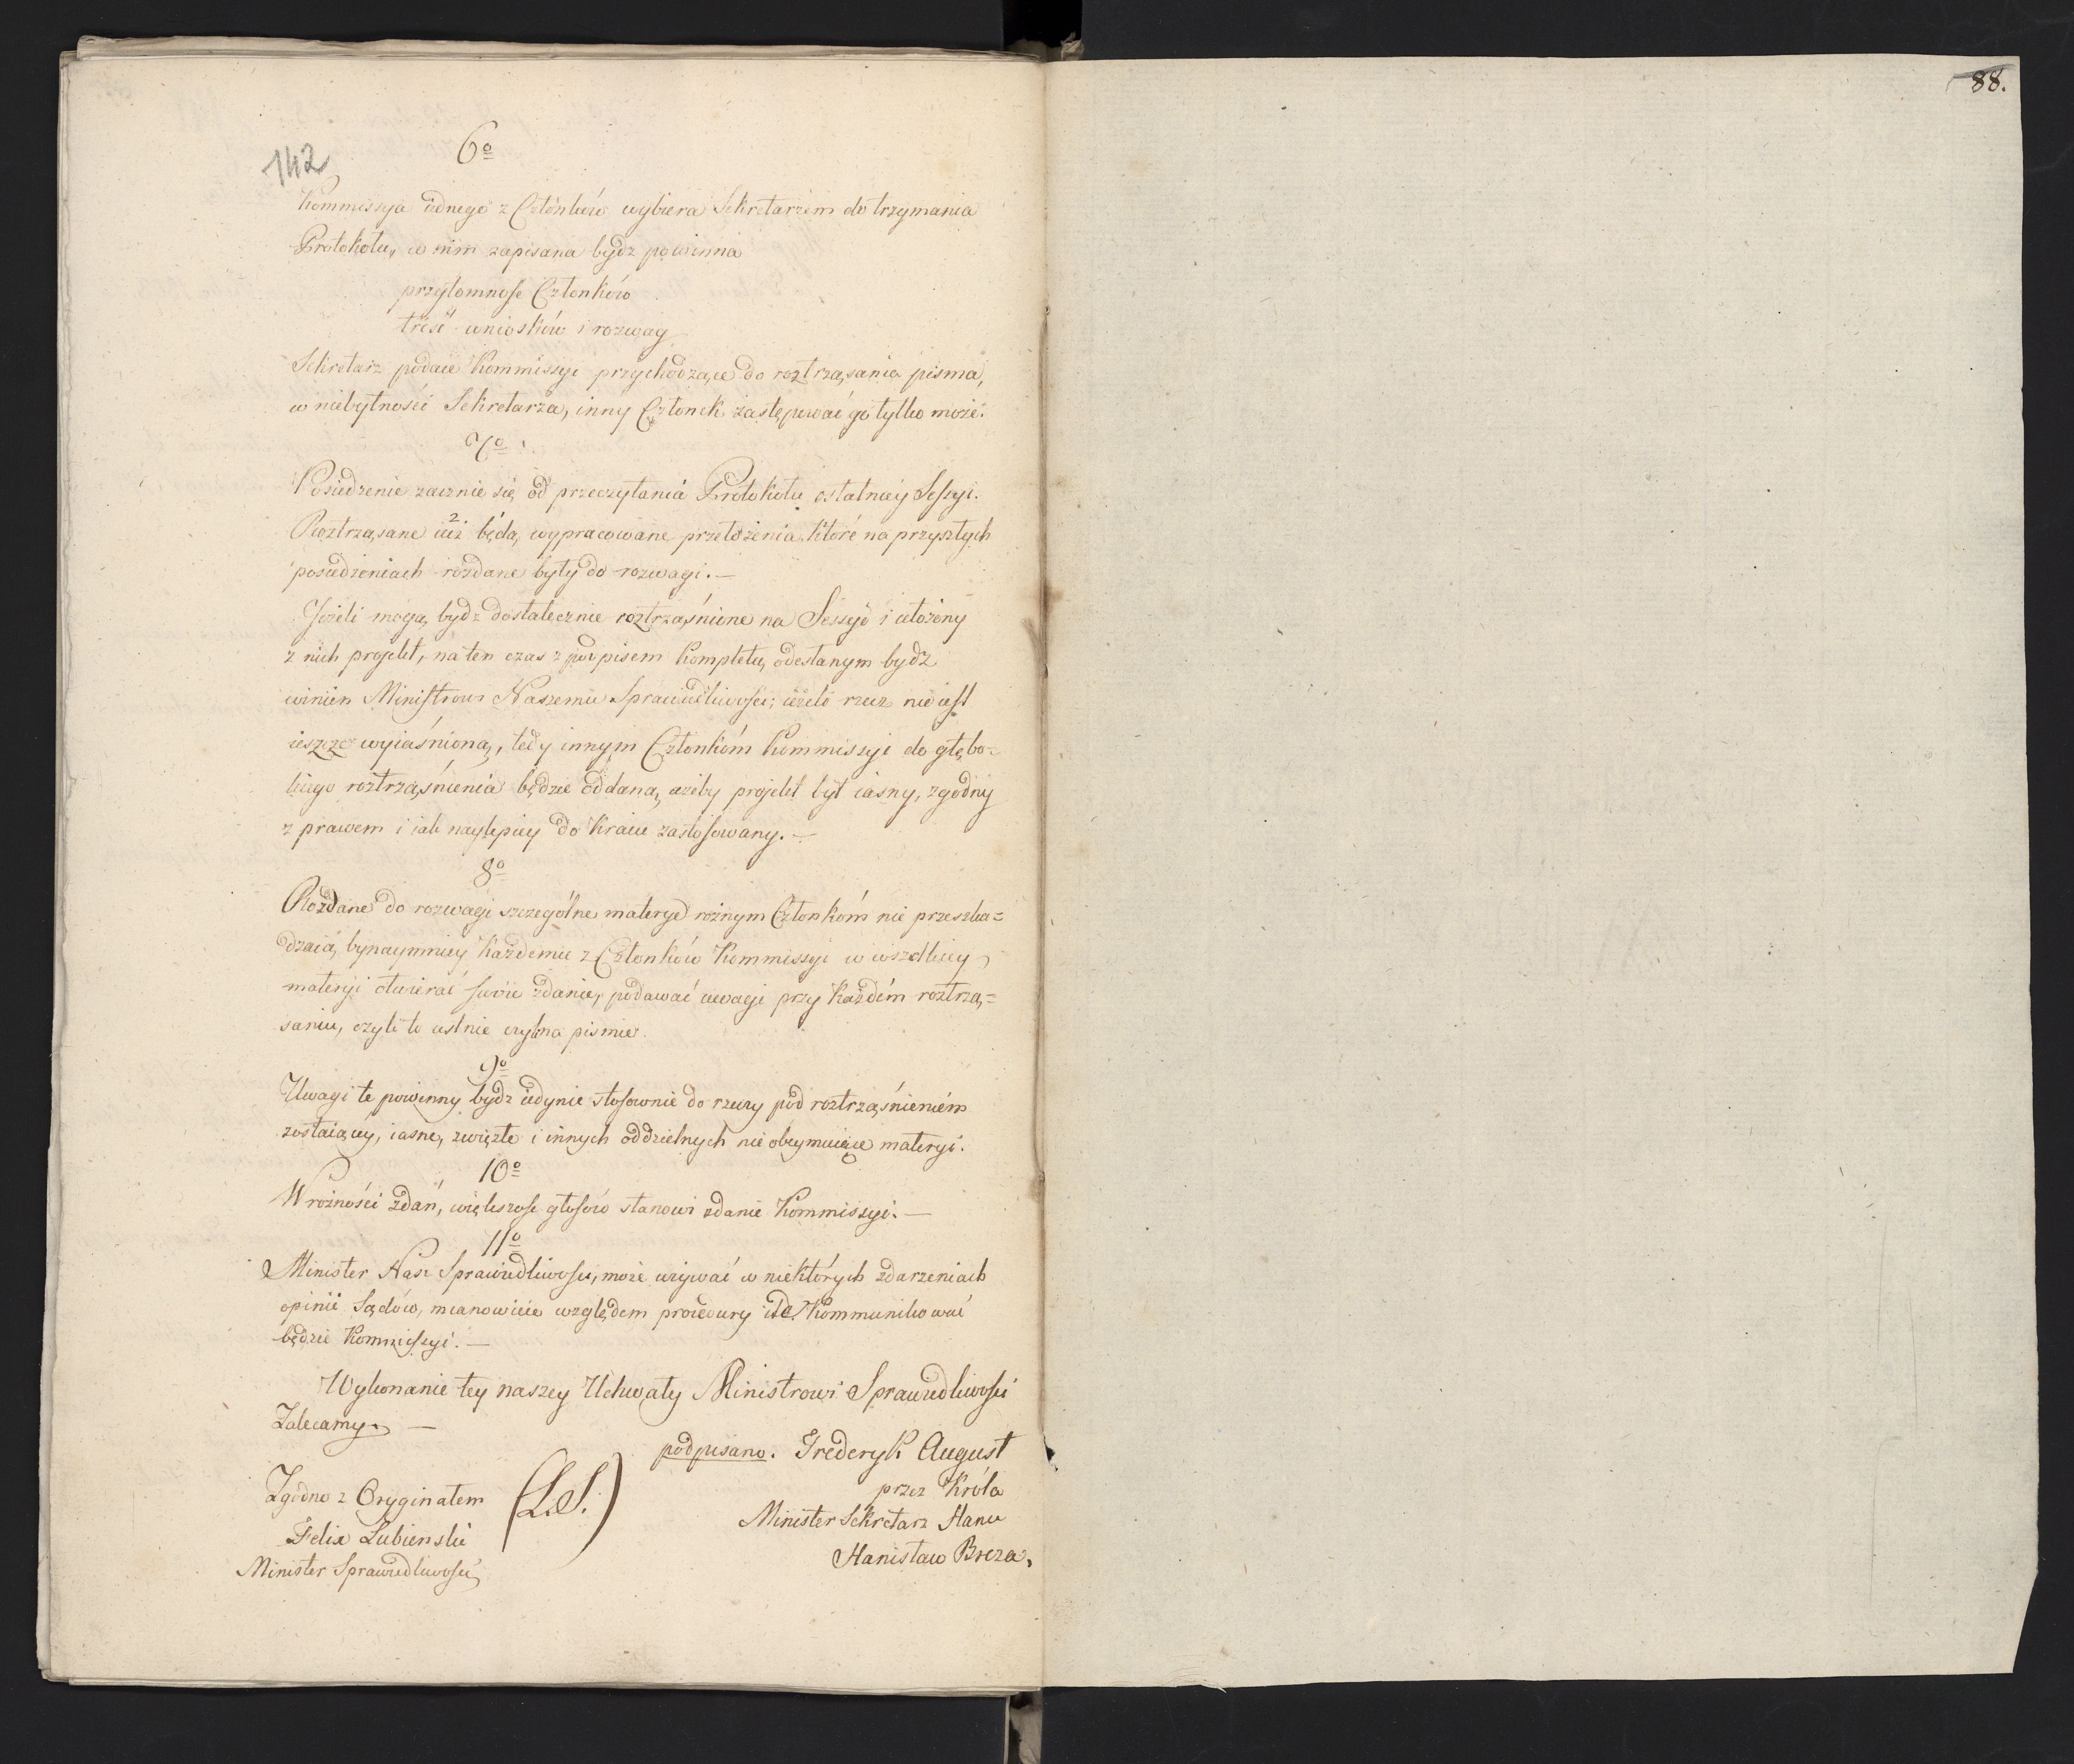 142
6º
Kommissya iednego z Członków wybiera Sekretarzem do trzymania
Protokołu, w nim zapisana bydz powinna
przytomność Członków
treść wniosków i rozwag
Sekretarz podaie Kommissyi przychodzące do roztrząsania pisma,
w niebytności Sekretarza, inny Członek zastępować go tylko może.
7º
Posiedzenie zacznie się od przeczytania Protokołu ostatniey Sessyi.
Roztrząsane też będą wypracowane przełożenia które na przyszłych
posiedzeniach rozdane były do rozwagi.—
Jeżeli mogą bydz dostatecznie roztrząśnione na Sessyi i ułożony
z nich projekt, na ten czas z podpisem Kompletu, odesłanym bydz
winien Ministrowi Naszemu Sprawiedliwości; ieżeli rzecz nie iest
ieszcze wyiaśnioną, tedy innym Członkóm Kommissyi do głębo=
kiego roztrząśnienia będzie oddana, ażeby projekt był iasny, zgodny
z prawem i iak naylepiey do Kraiu zastosowany.—
8º
Rozdane do rozwagi szczególne materye róźnym Członkóm nie przeszka=
dzaią bynaymniey Każdemu z Członków Kommissyi w wszelkiey
materyi otwierać swóie zdanie, podawać uwagi przy Każdém roztrzą=
saniu, czyli to ustnie czyli na pismie.
9º
Uwagi te powinny bydz iedynie stosownie do rzeczy pod roztrząśnieniém
zostaiącey, iasne, zwięzłe i innych oddzielnych nie obeymuiące materyi.
10º
W rożności zdań, większość głosów stanowi zdanie Kommissyi.—
11º
Minister Nasz Sprawiedliwości, może wzywać w niektórych zdarzeniach
opinii Sądów, mianowicie względem procedury i te Kommunikować
będzie Kommissyi.—
Wykonanie tey naszey Uchwały Ministrowi Sprawiedliwości
Zalecamy.—
podpisano. Frederyk August
przez Króla
Minister Sekretarz Stanu
Stanisław Breza,
Zgodno z Oryginałem
(L.S.)
Felix Łubienski
Minister Sprawiedliwości
88.